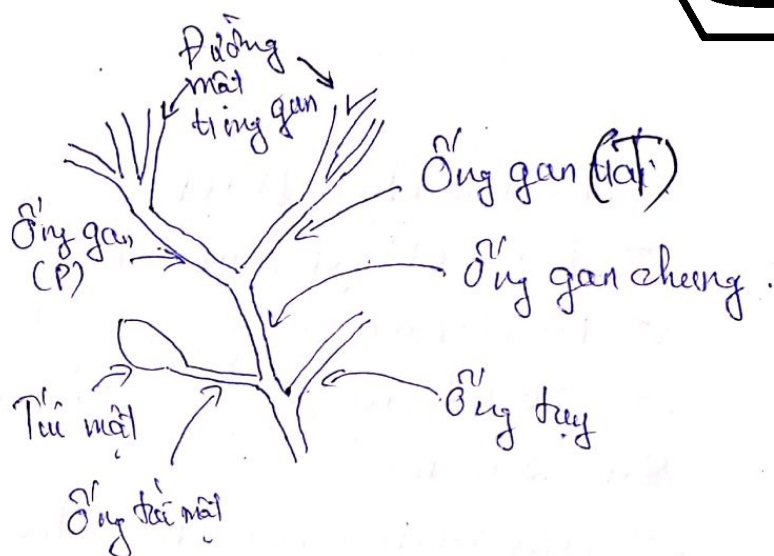 Đường
mật
trong gan
Ống gan (T)
Ống gan
(P)
Ống gan chung
Túi mật
Ống tụy
Ống túi mật